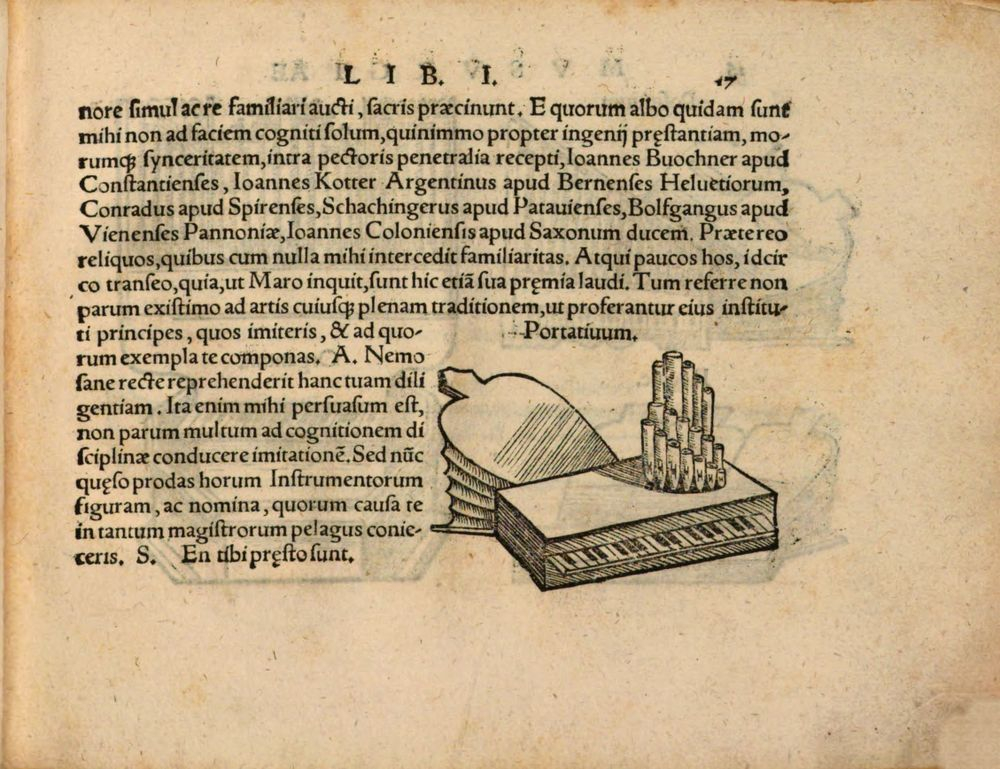 LIB. I. 17
nore simul ac re familiari aucti, sacris præcinunt. E quorum albo quidam sunt
mihi non ad faciem cogniti solum, quinimmo propter ingenij pręstantiam, mo-
rumqꝫ synceritatem, intra pectoris penetralia recepti, Ioannes Buochner apud
Constantienses, Ioannes Kotter Argentinus apud Bernenses Heluetiorum,
Conradus apud Spirenses, Schachingerus apud Patauienses, Bolfgangus apud
Vienenses Pannoniæ, Ioannes Coloniensis apud Saxonum ducem. Prætereo
reliquos, quibus cum nulla mihi intercedit familiaritas. Atqui paucos hos, idcir
co transeo, quia, ut Maro inquit, sunt hic etiã sua pręmia laudi. Tum referre non
parum existimo ad artis cuiusqꝫ plenam traditionem, ut proferantur eius institu-
ti principes, quos imiteris, & ad quo-
Portatiuum.
rum exempla te componas. A. Nemo
sane recte reprehenderit hanc tuam dili
gentiam. Ita enim mihi persuasum est,
non parum multum ad cognitionem di
sciplinæ conducere imitationẽ. Sed nũc
quęso prodas horum Instrumentorum
figuram, ac nomina, quorum causa te
in tantum magistrorum pelagus coniec-
teris. S. En tibi pręsto sunt.